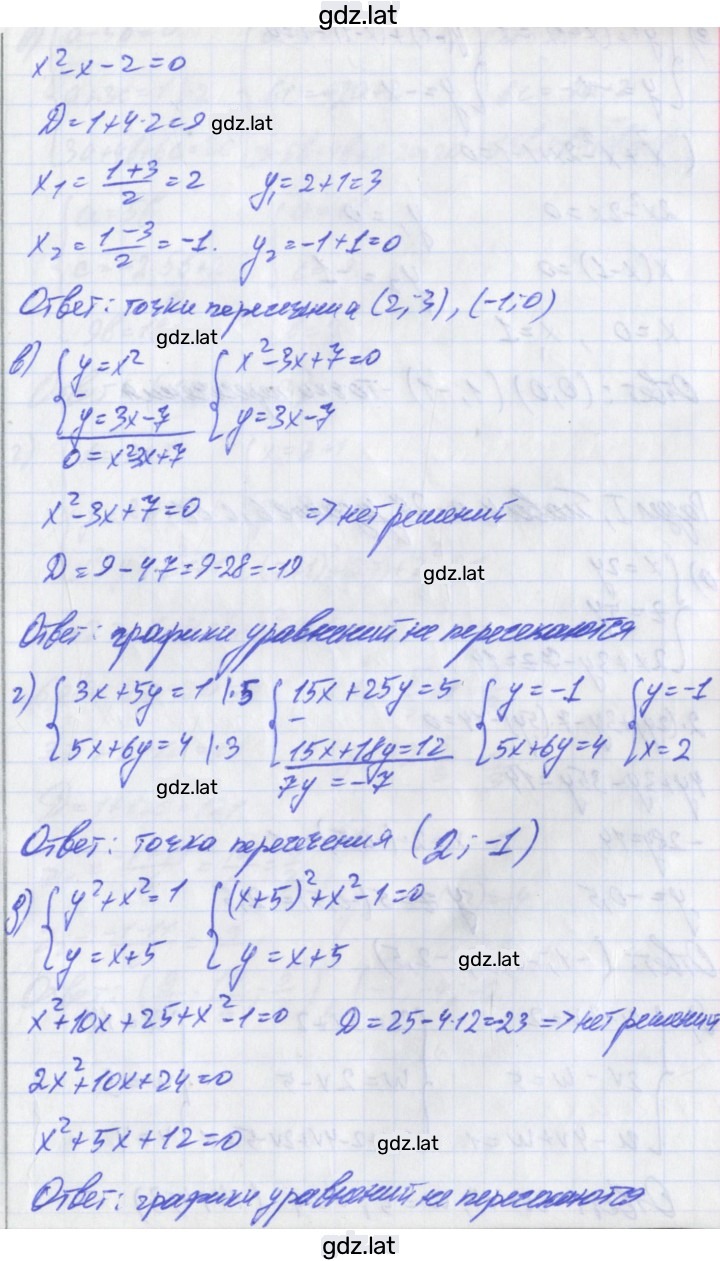 gdz.lat
x²-x-2=0
D=1+4·2=9 gdz.lat
x₁= (1+3)/2 =2 y₁=2+1=3
x₂= (1-3)/2 =-1. y₂=-1+1=0
Ответ: точки пересечения (2;3), (-1;0)
gdz.lat
в) { y=x² { x²-3x+7=0
- y=3x-7 y=3x-7
0=x²-3x+7
x²-3x+7=0 => нет решений
D=9-4·7=9-28=-19 gdz.lat
Ответ: графики уравнений не пересекаются
г) { 3x+5y=1 |·5 { 15x+25y=5 { y=-1 { y=-1
5x+6y=4 |·3 - 15x+18y=12 5x+6y=4 x=2
gdz.lat 7y=-7
Ответ: точка пересечения (2;-1)
д) { y²+x²=1 { (x+5)²+x²-1=0
y=x+5 y=x+5 gdz.lat
x²+10x+25+x²-1=0 D=25-4·12=-23 => нет решений
2x²+10x+24=0
x²+5x+12=0 gdz.lat
Ответ: графики уравнений не пересекаются
gdz.lat